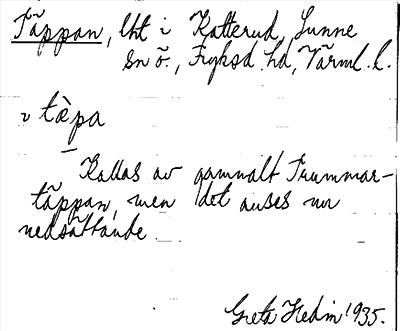 Täppan, lht i Katterud, Sunne
sn ö., Fryksd. hd, Värml. l.
v tæ̀pa
Kallas av gammalt Trummar-
täppan, men det anses nu
nedsättande.
Greta Hedin 1935.